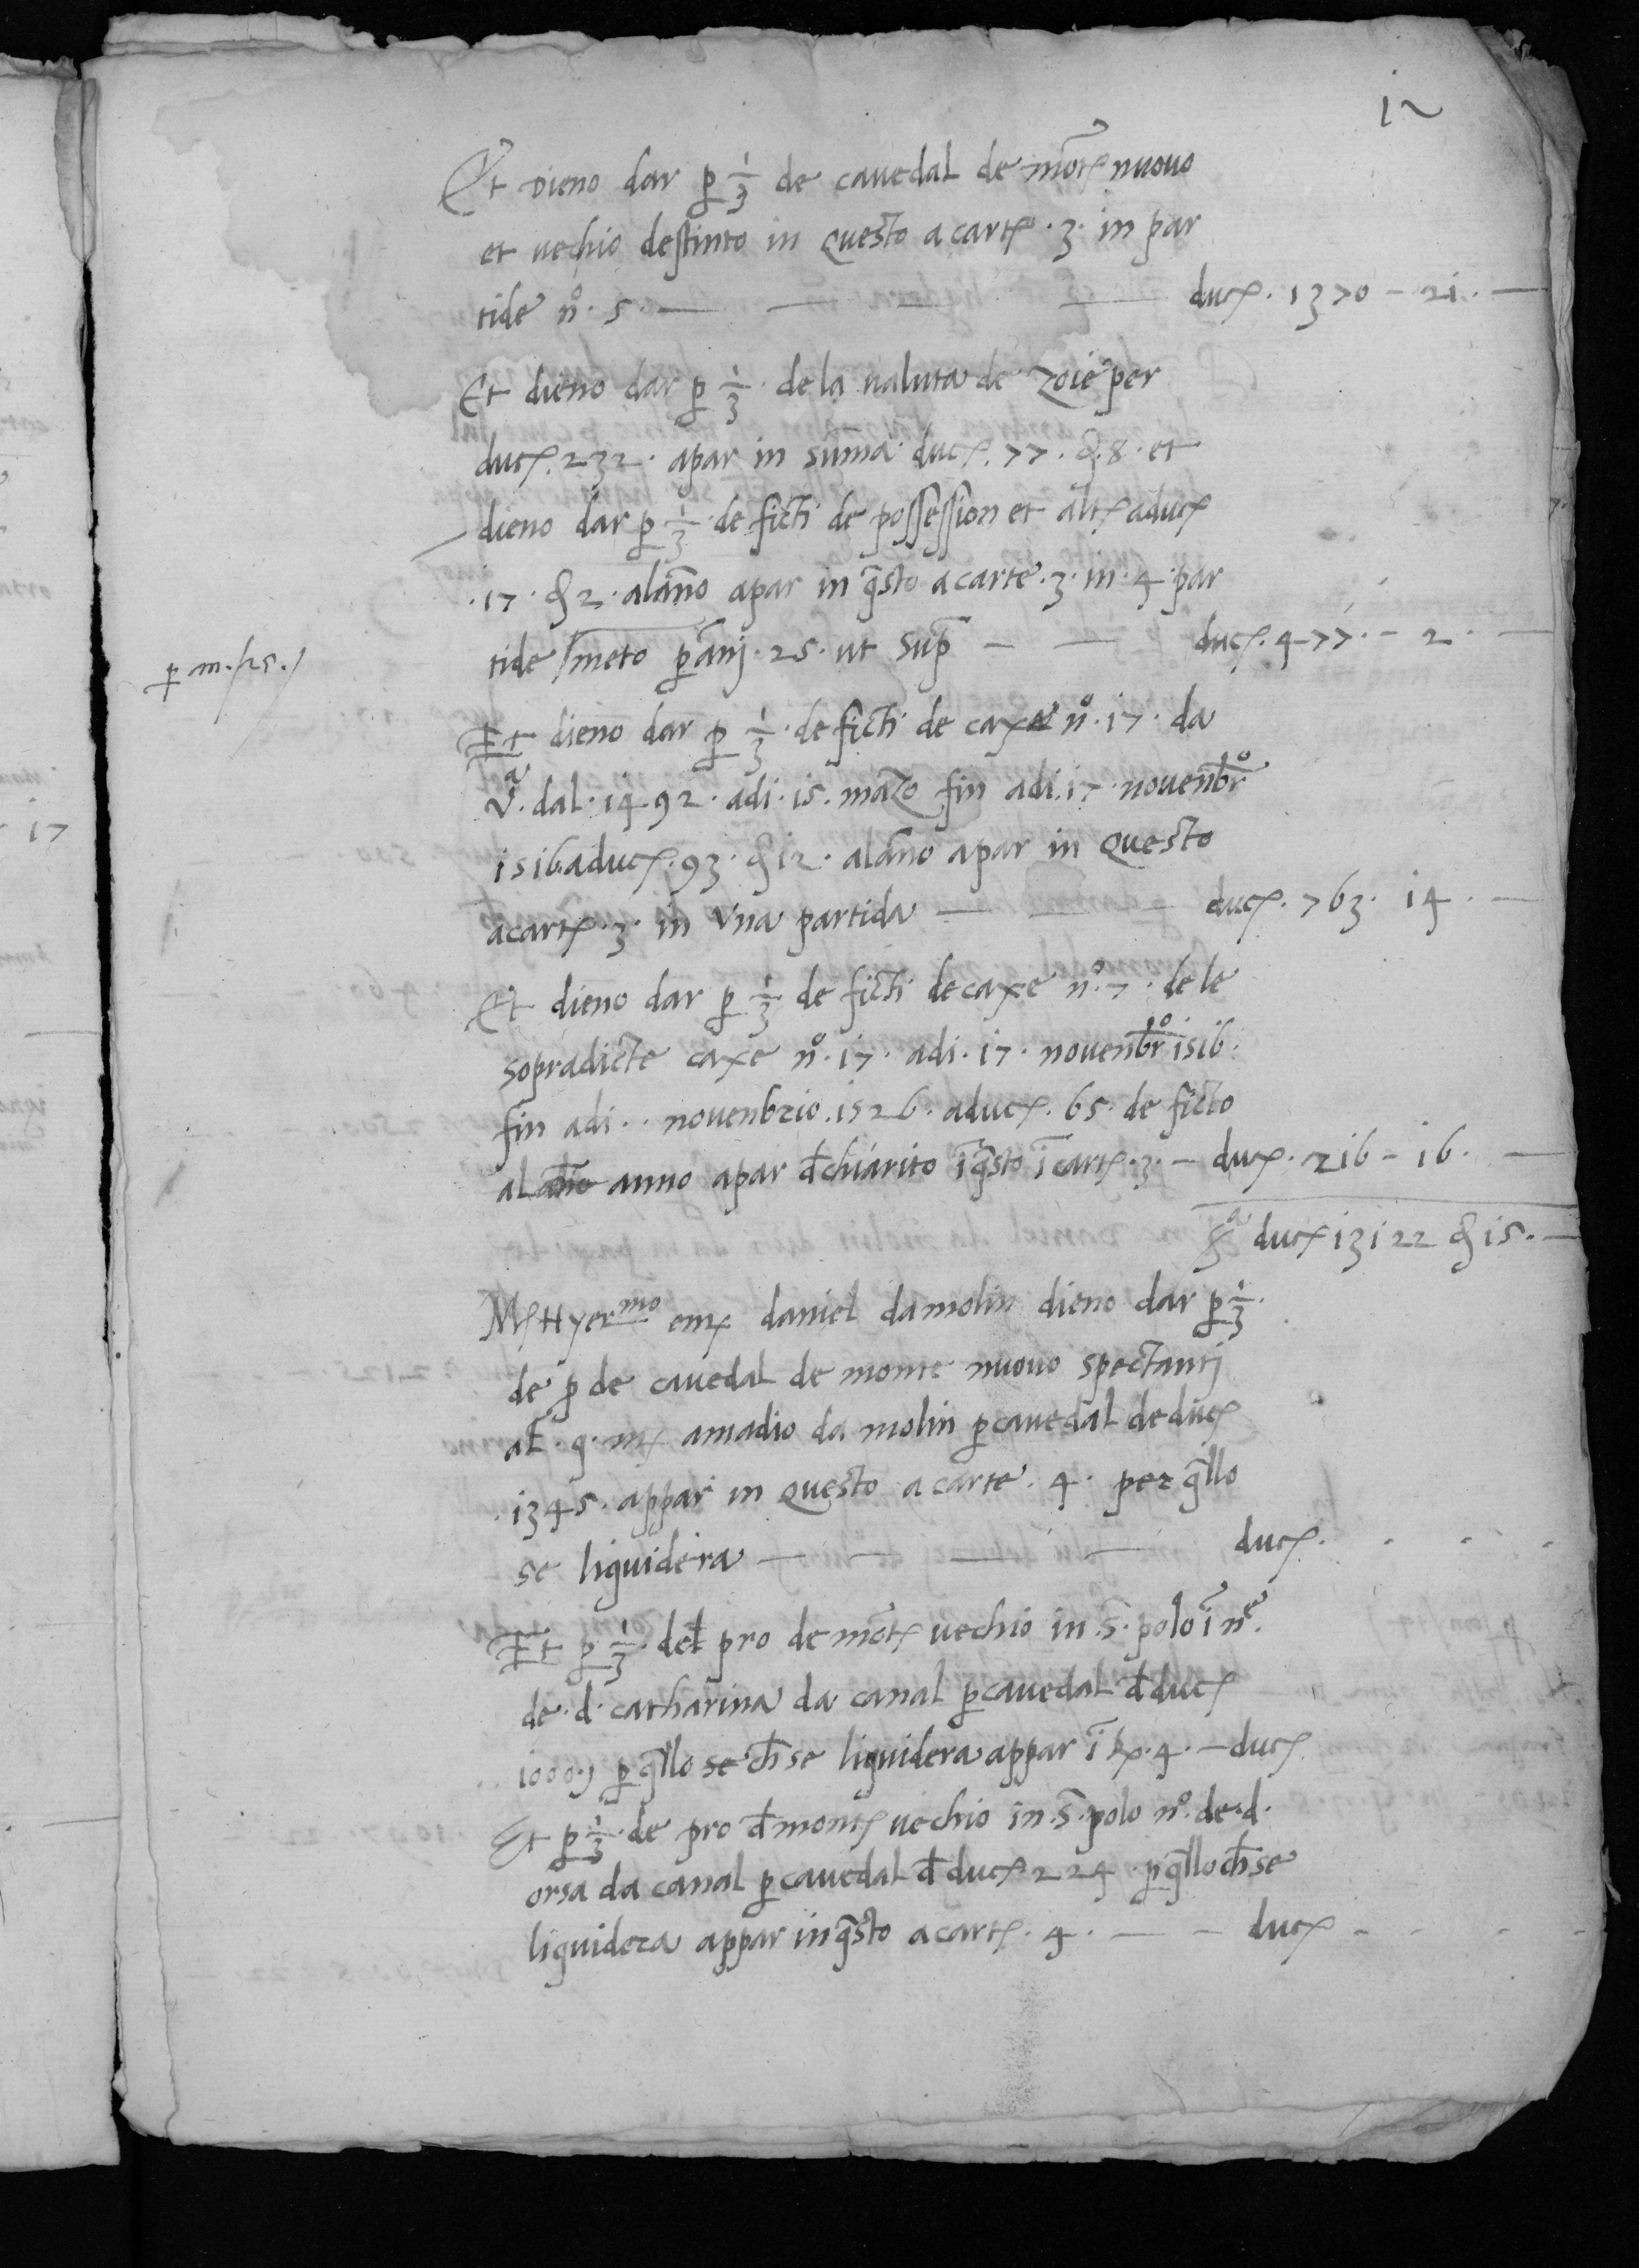 12
Et Dieno dar p 1/3 de cauedal de mōt nuouo
et uechio destinto in questo a cart .3. in par
tide n° .5. — — — — duc. 1370 - 21. —
Et dieno dar p 1/3 . de la ualuta de zoie per
duc. 232. apar in suma duc. 77. 8. et
dieno dar p 1/3 . de ficti de possession et alt aduc
.17. 2. alāno apar in q̄sto a carte .3. in .4. par
tide meto p anj .25. ut sup̄ — — duc. 477. - 2. —
p an. 25.
Et dieno dar p 1/3 . de ficti de caxe n° .17. da
va. dal. 1492. adi. 15. mazo fin adi. 17. nouenbro
1516. aduc. 93. 12. alāno apar in questo
acart .3. in vna partida — — — duc. 763. 14. —
Et dieno dar p 1/3 de ficti de caxe n° .7. de le
sopradicte caxe n° .17. adi. 17. nouenbro 1516.
fin adi . . nouenbrio. 1526. aduc. 65. de ficto
al āno anno apar đchiarito ī q̄sto ī cart .3. — duc. 216 - 16. —
duc 13122 15. —
M Hyermo em daniel da molin dieno dar p 1/3.
de p de cauedal de monte nuouo spectantj
al q. m amadio da molin p cauedal de duc
.1345. appar in questo a carte. 4. per q̄llo
se liquidera — — — — duc. . . .
Et p 1/3 . del pro de mōt uechio in .S. polo ī ne.
de. d. catharina da canal p cauedal đ duc
1000 p q̄llo se ch̄ se liquidera appar ī k .4. — duc
Et p 1/3 . de pro đ mont uechio in .S. polo n°. de. d.
orsa da canal p cauedal đ duc 224 p q̄llo ch̄ se
liquidera appar in q̄sto a cart . 4. — — duc - - - -